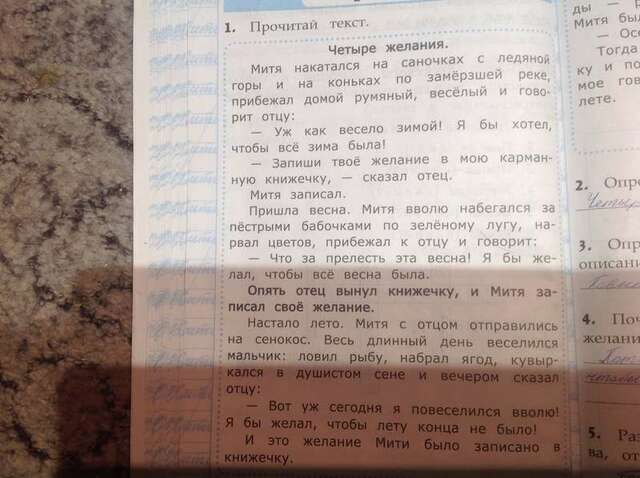 1. Прочитай текст.
Четыре желания.
Митя накатался на саночках с ледяной
горы и на коньках по замёрзшей реке,
прибежал домой румяный, весёлый и гово-
рит отцу:
— Уж как весело зимой! Я бы хотел,
чтобы всё зима была!
— Запиши твоё желание в мою карман-
ную книжечку, — сказал отец.
Митя записал.
Пришла весна. Митя вволю набегался за
пёстрыми бабочками по зелёному лугу, на-
рвал цветов, прибежал к отцу и говорит:
— Что за прелесть эта весна! Я бы же-
лал, чтобы всё весна была.
Опять отец вынул книжечку, и Митя за-
писал своё желание.
Настало лето. Митя с отцом отправились
на сенокос. Весь длинный день веселился
мальчик: ловил рыбу, набрал ягод, кувыр-
кался в душистом сене и вечером сказал
отцу:
— Вот уж сегодня я повеселился вволю!
Я бы желал, чтобы лету конца не было!
И это желание Мити было записано в
книжечку.
ды — р
Митя был
— Осе
Тогда
ку и по
мое гов
лете.
2. Опре
Четыр
3. Опр
описани
4. Поч
желани
5. Раз
ва, от